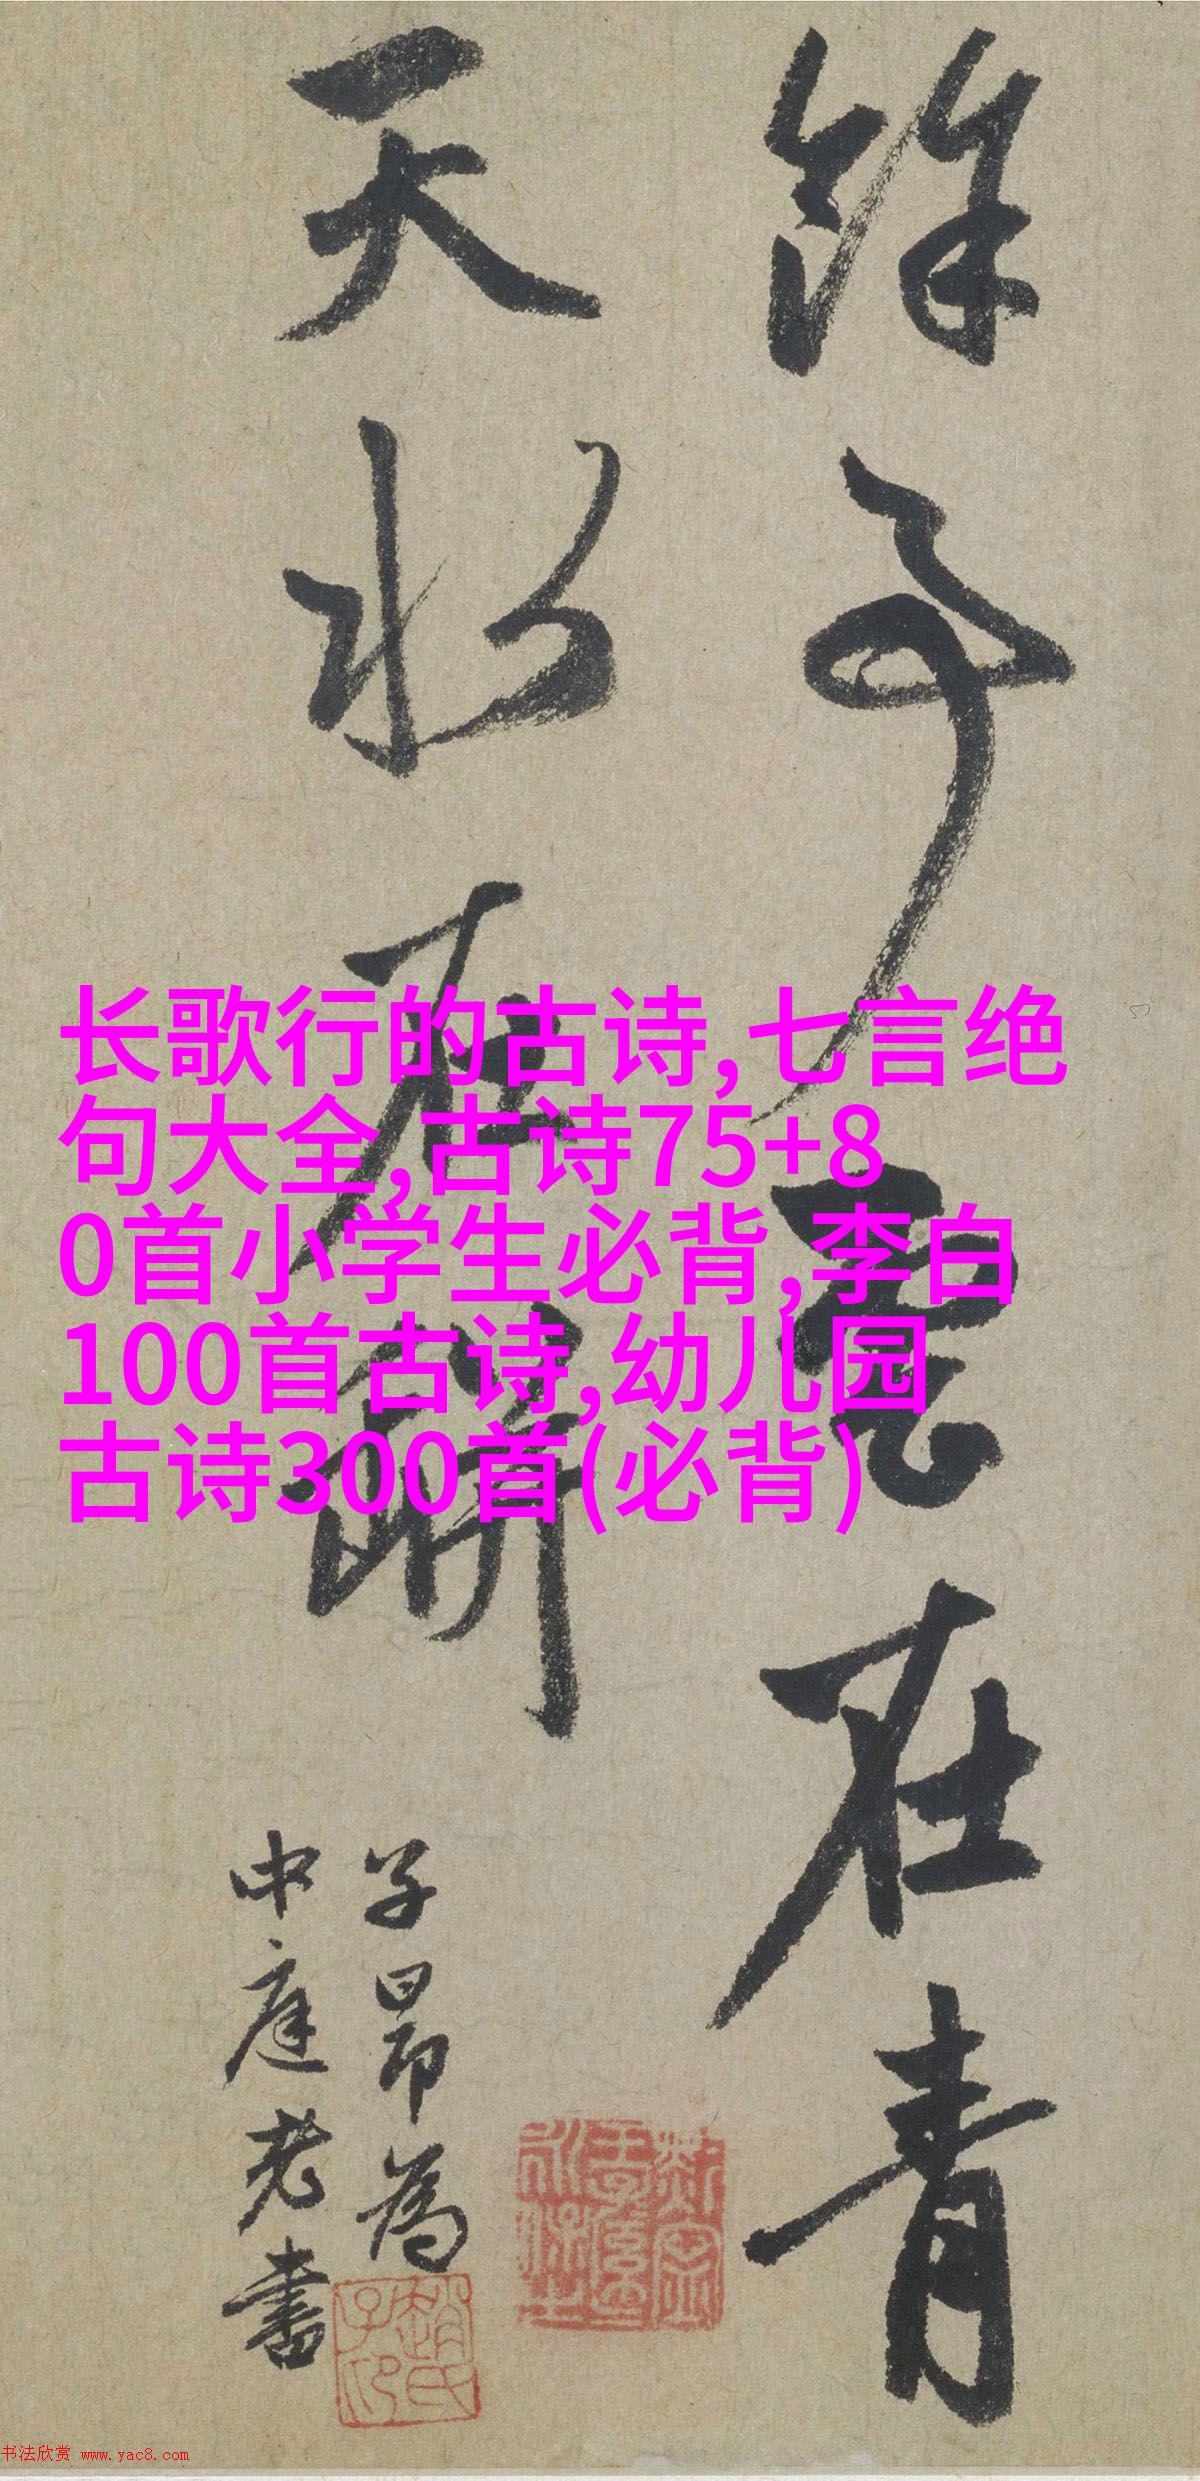 餘事雲在青
天水在瓶
子昂為
中庭老書
趙氏子印
长歌行的古诗,七言绝
句大全,古诗75+8
0首小学生必背,李白
100首古诗,幼儿园
古诗300首(必背)
书法欣赏 www.yac8.com